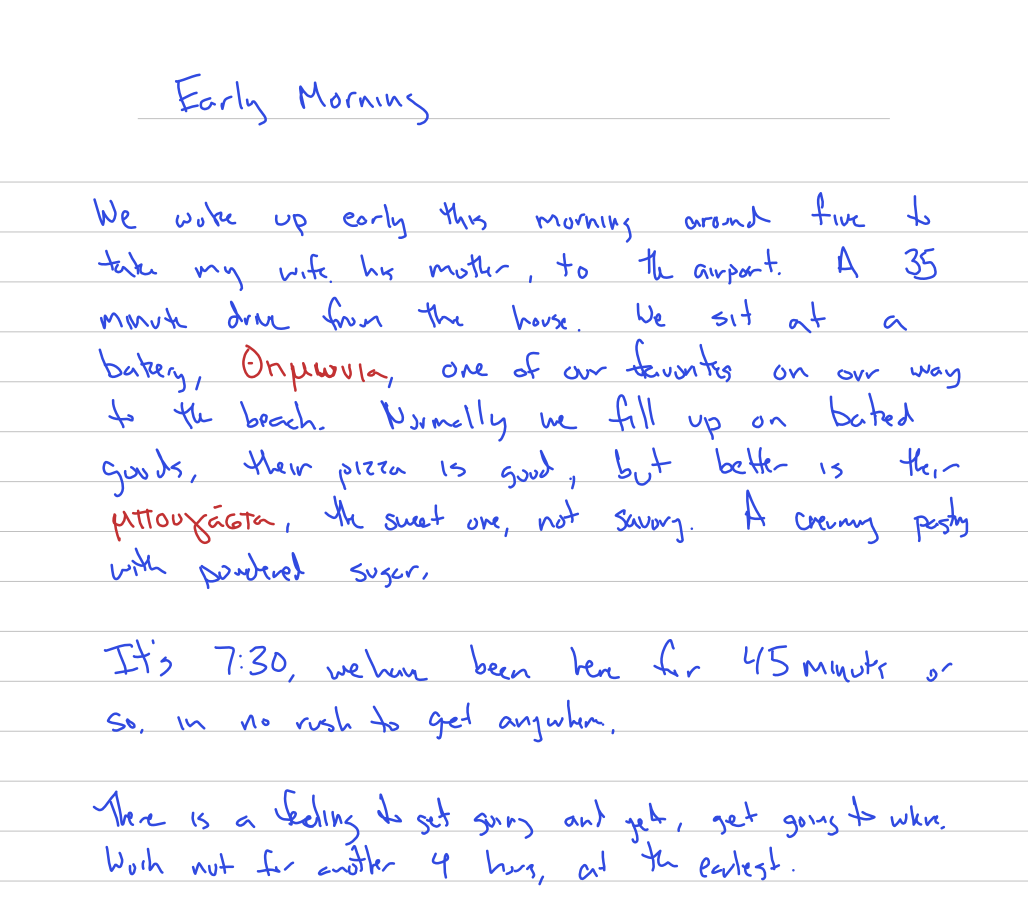 Early Morning
We woke up early this morning around five to
take my wife. his mother, to the airport. A 35
minute drive from the house. We sit at a
bakery, Θημωνια, one of our favorites on our way
to the beach. Normally we fill up on baked
goods, their pizza is good, but better is their
μπουγάσταα, the sweet one, not savory. A creamy pastry
with powdered sugar.
It's 7:30, we have been here for 45 minutes or
so, in no rush to get anywhere.
There is a feeling to get going and yet, get going to where.
Work not for another 4 hours, at the earliest.